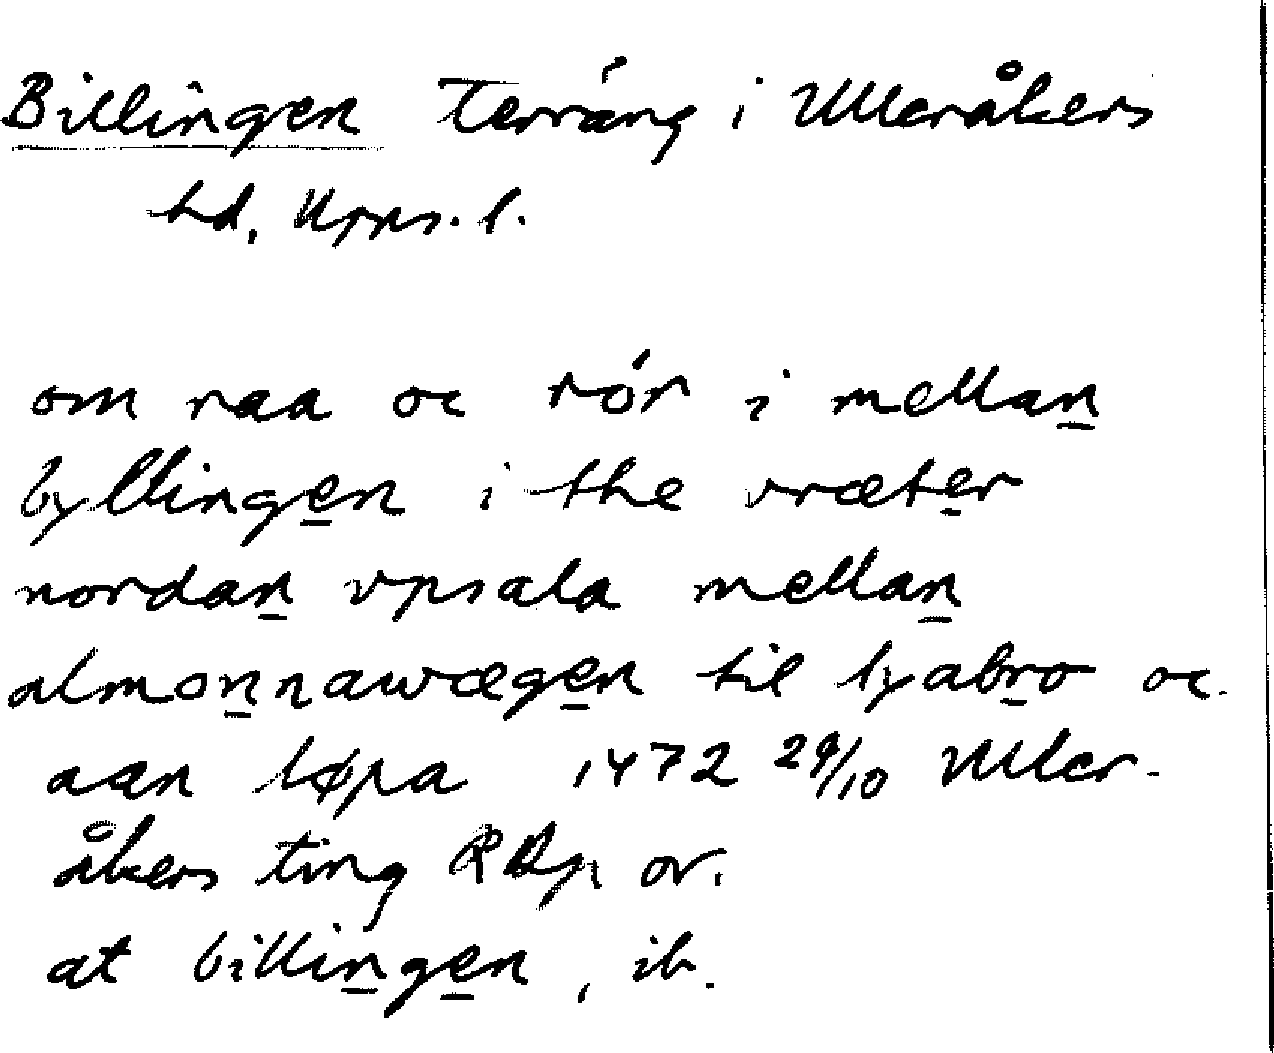 Billingen Terräng i Ulleråkers
hd, Upps. l.
om raa oc rör i mellan
byllingen i the vræter
nordan vpsala mellan
almonnawægen til lyabro oc
aan løpa 1472 29/10 Uller-
åkers ting RDp or.
at billingen, ib.